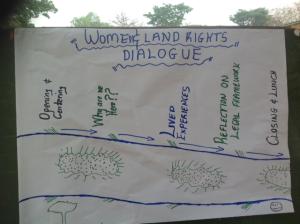 WOMEN & LAND RIGHTS
DIALOGUE
Opening &
Centering
Why are we
Here??
LIVED
EXPERIENCES
REFLECTION ON
LEGAL FRAMEWORK
CLOSING & LUNCH